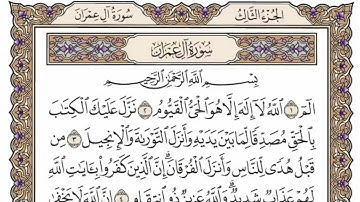 سُورَةُ آلِ عِمْرَان
الجُزْءُ الثَّالِثُ
سُورَةُ آلِ عِمْرَانَ
بِسْمِ اللَّهِ الرَّحْمَٰنِ الرَّحِيمِ
الٓمٓ ١ ٱللَّهُ لَآ إِلَٰهَ إِلَّا هُوَ ٱلْحَىُّ ٱلْقَيُّومُ ٢ نَزَّلَ عَلَيْكَ ٱلْكِتَٰبَ
بِٱلْحَقِّ مُصَدِّقًا لِّمَا بَيْنَ يَدَيْهِ وَأَنزَلَ ٱلتَّوْرَىٰةَ وَٱلْإِنجِيلَ ٣ مِن
قَبْلُ هُدًى لِّلنَّاسِ وَأَنزَلَ ٱلْفُرْقَانَ ۗ إِنَّ ٱلَّذِينَ كَفَرُوا۟ بِـَٔايَٰتِ ٱللَّهِ
لَهُمْ عَذَابٌ شَدِيدٌ ۗ وَٱللَّهُ عَزِيزٌ ذُو ٱنتِقَامٍ ٤ إِنَّ ٱللَّهَ لَا يَخْفَىٰ